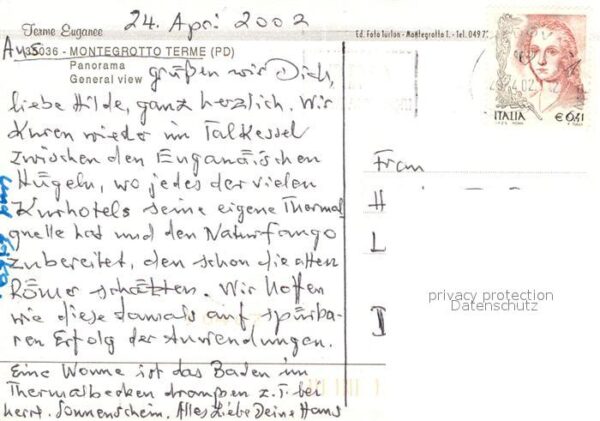 24. Apri 2002
Terme Euganee
Ed. Foto Turlon - Montegrotto T. - Tel. 049 7
Aus
35036 - MONTEGROTTO TERME (PD)
Panorama
General view
grüßen wir Dich,
liebe Hilde, ganz herzlich. Wir
kuren wieder im Talkessel
zwischen den Euganäischen
Hügeln, wo jedes der vielen
Kurhotels seine eigene Thermal
quelle hat und den Naturfango
zubereitet, den schon die alten
Römer schätzten. Wir hoffen
wie diese damals auf spürba-
ren Erfolg der Anwendungen.
Eine Wonne ist das Baden im
Thermalbecken draußen z.T. bei
herrl. Sonnenschein. Alles Liebe Deine Hans
und
ITALIA
€ 0,41
Frau
H
L
D
privacy protection
Datenschutz